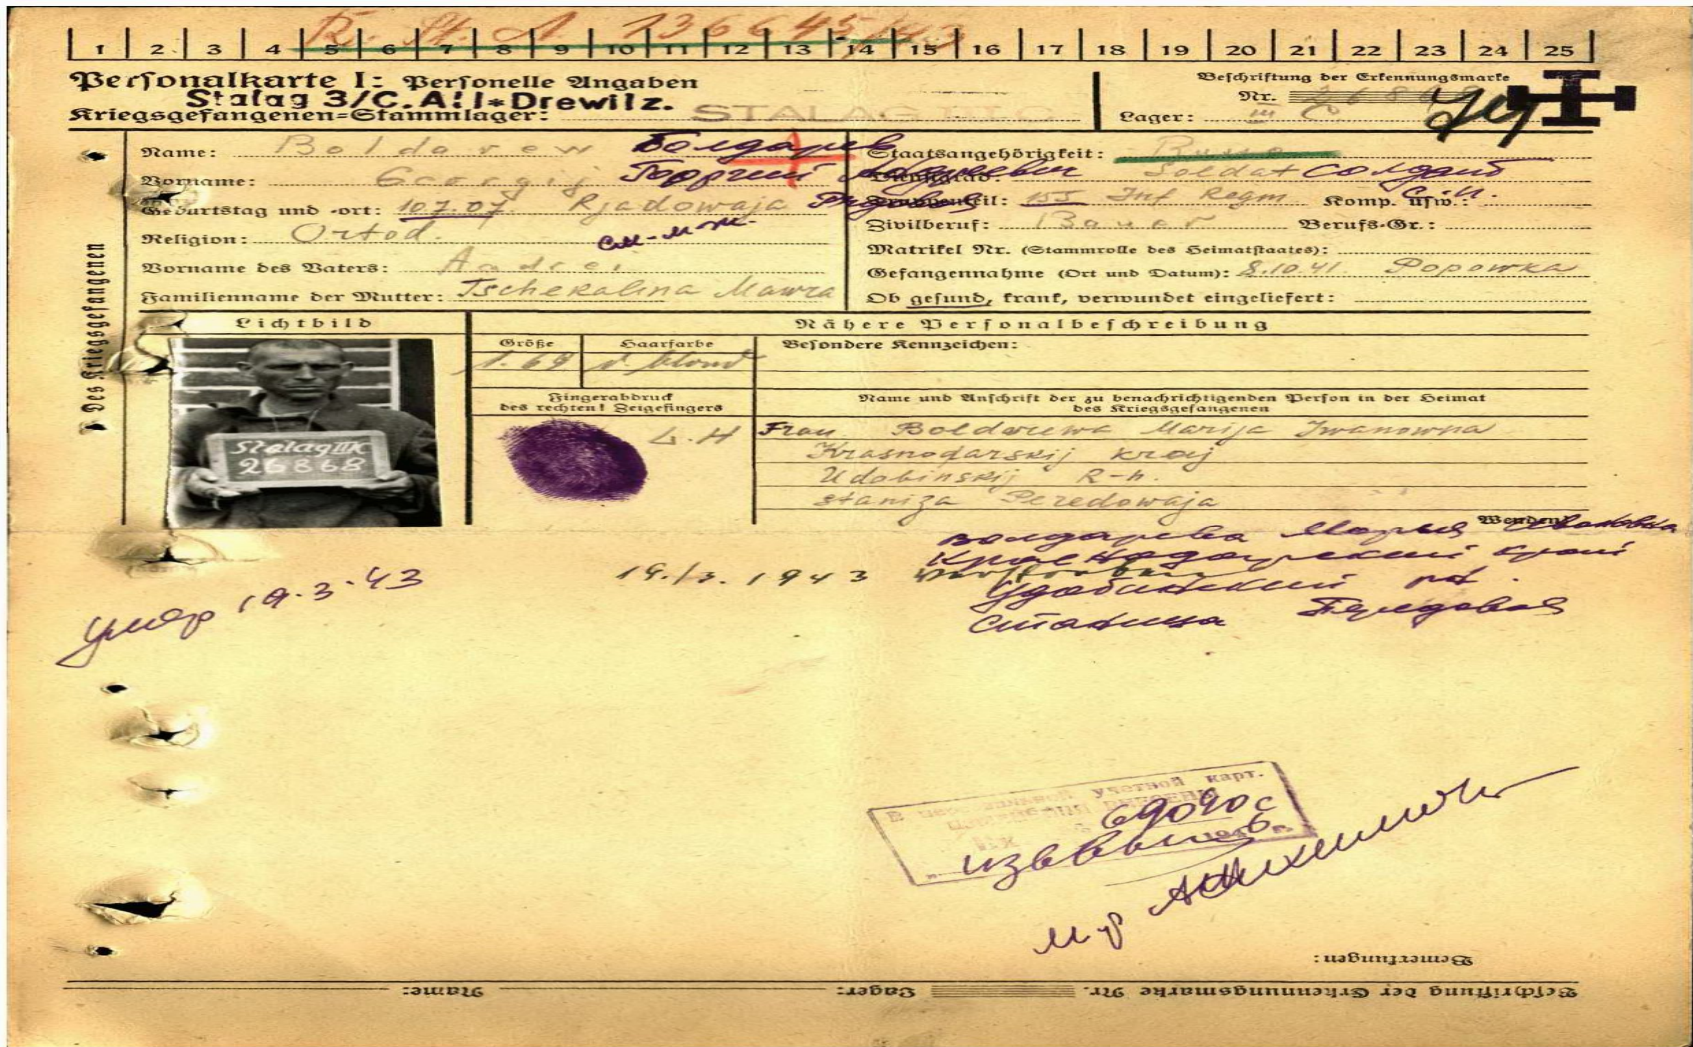 R. St. A 136645/43
1 2 3 4 5 6 7 8 9 10 11 12 13 14 15 16 17 18 19 20 21 22 23 24 25
Personalkarte I: Personelle Angaben
Stalag 3/C.A:I*Drewitz.
Kriegsgefangenen-Stammlager: STALAG III C
Beschriftung der Erkennungsmarke
Nr. 26868
Lager: III C
Des Kriegsgefangenen
Name: Boldarew Болдарев
Vorname: Georgij Георгий
Geburtstag und -ort: 10.7.07. Rjadowaja
Religion: Ortod.
см-м-ж.
Vorname des Vaters: Andrei
Familienname der Mutter: Tschekalina Mawra
Staatsangehörigkeit: Russe
Dienstgrad: Soldat солдат
Truppenteil: 155 Inf Regm Komp. usw.: с.п.
Zivilberuf: Bauer Berufs-Gr.:
Matrikel Nr. (Stammrolle des Heimatstaates):
Gefangennahme (Ort und Datum): 8.10.41. Popowka
Ob gesund, krank, verwundet eingeliefert:
Lichtbild
Nähere Personalbeschreibung
Größe
Haarfarbe
Besondere Kennzeichen:
1.69
d. blond
Stalag III C
26868
Fingerabdruck
des rechten! Zeigefingers
Name und Anschrift der zu benachrichtigenden Person in der Heimat
des Kriegsgefangenen
Frau Boldarewa Marija Iwanowna
Krasnodarskij kraj
Udobinskij R-n.
staniza Peredowaja
Wenden!
Болдарева Марья Ивановна
Краснодарский край
Удобинский
Станица Передовая
умер 19.3.43
19./3. 1943 verstorben
учетной карт.
69090с
Bemerkungen:
Beschriftung der Erkennungsmarke Nr. Lager: Name: